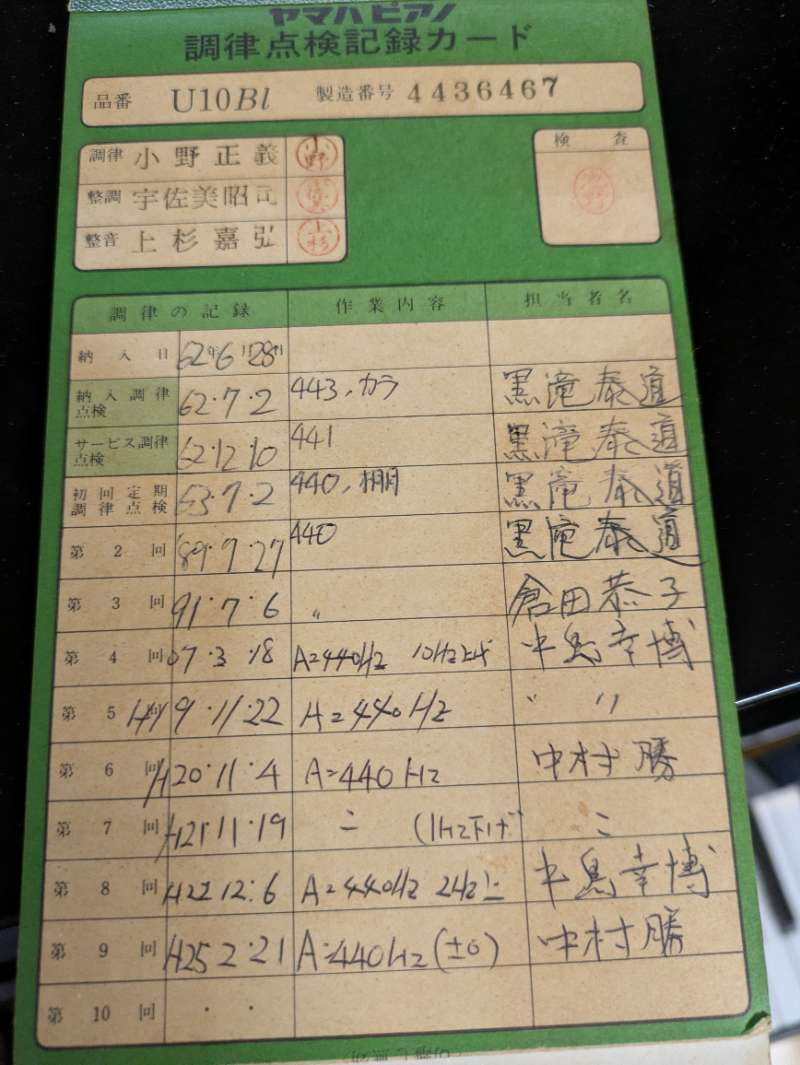 ヤマハピアノ
調律点検記録カード
品番 U10Bl 製造番号 4436467
調律 小野正義 小野
整調 宇佐美昭司
整音 上杉嘉弘 上杉
検査
調律の記録 作業内容 担当者名
納入日 62年6月28日
納入調律点検 62・7・2 443、カラ 黒滝泰道
サービス調律点検 62・12・10 441 黒滝泰道
初回定期調律点検 63・7・2 440、棚 黒滝泰道
第2回 89・7・27 440 黒滝泰道
第3回 91・7・6 〃 倉田恭子
第4回 07・3・18 A=440Hz 10Hz上げ 中島幸博
第5回 H19・11・22 A=440Hz 〃
第6回 H20・11・4 A=440Hz 中村勝
第7回 H21・11・19 〃 (1Hz下げ 〃
第8回 H22 12・6 A=440Hz 2Hz上 中島幸博
第9回 H25 2・21 A=440Hz (±0) 中村勝
第10回 ・ ・